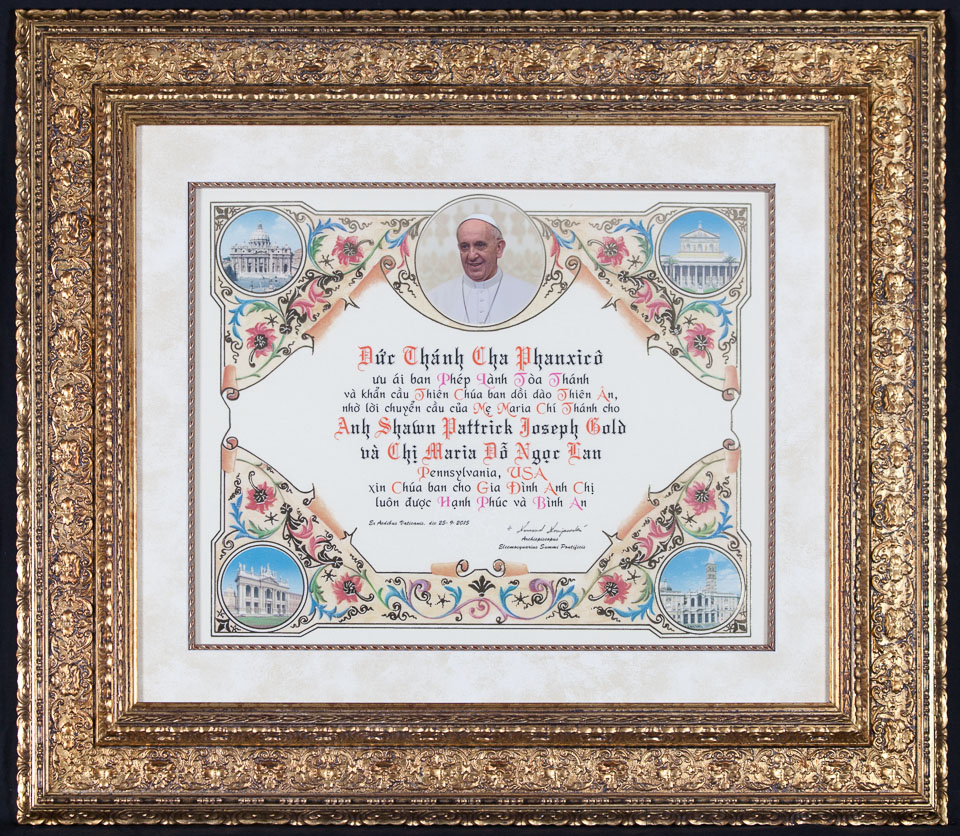 Đức Thánh Cha Phanxicô
ưu ái ban Phép Lành Tòa Thánh
và khẩn cầu Thiên Chúa ban dồi dào Thiên Ân,
nhờ lời chuyển cầu của Mẹ Maria Chí Thánh cho
Anh Shawn Pattrick Joseph Gold
và Chị Maria Đỗ Ngọc Lan
Pennsylvania, USA
xin Chúa ban cho Gia Đình Anh Chị
luôn được Hạnh Phúc và Bình An
Ex Aedibus Vaticanis, die 25-9-2015
Archiepiscopus
Eleemosynarius Summi Pontificis